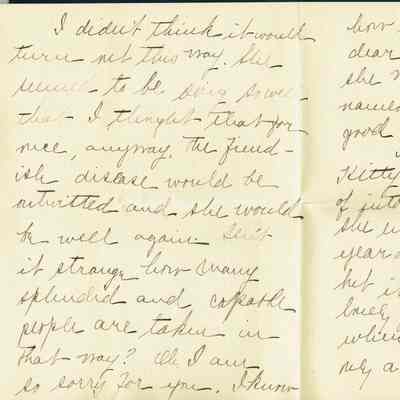 I didn't think it would
turn out this way. She
seemed to be doing so well
that I thought that for
once, anyway, the fiend-
ish disease would be
outwitted and she would
be well again. Isn't
it strange how many
splendid and capable
people are taken in
that way? Oh I am
so sorry for you. I know
how
dear
she
named
good
Kitty
of
she
year
but
lovely
when
my a